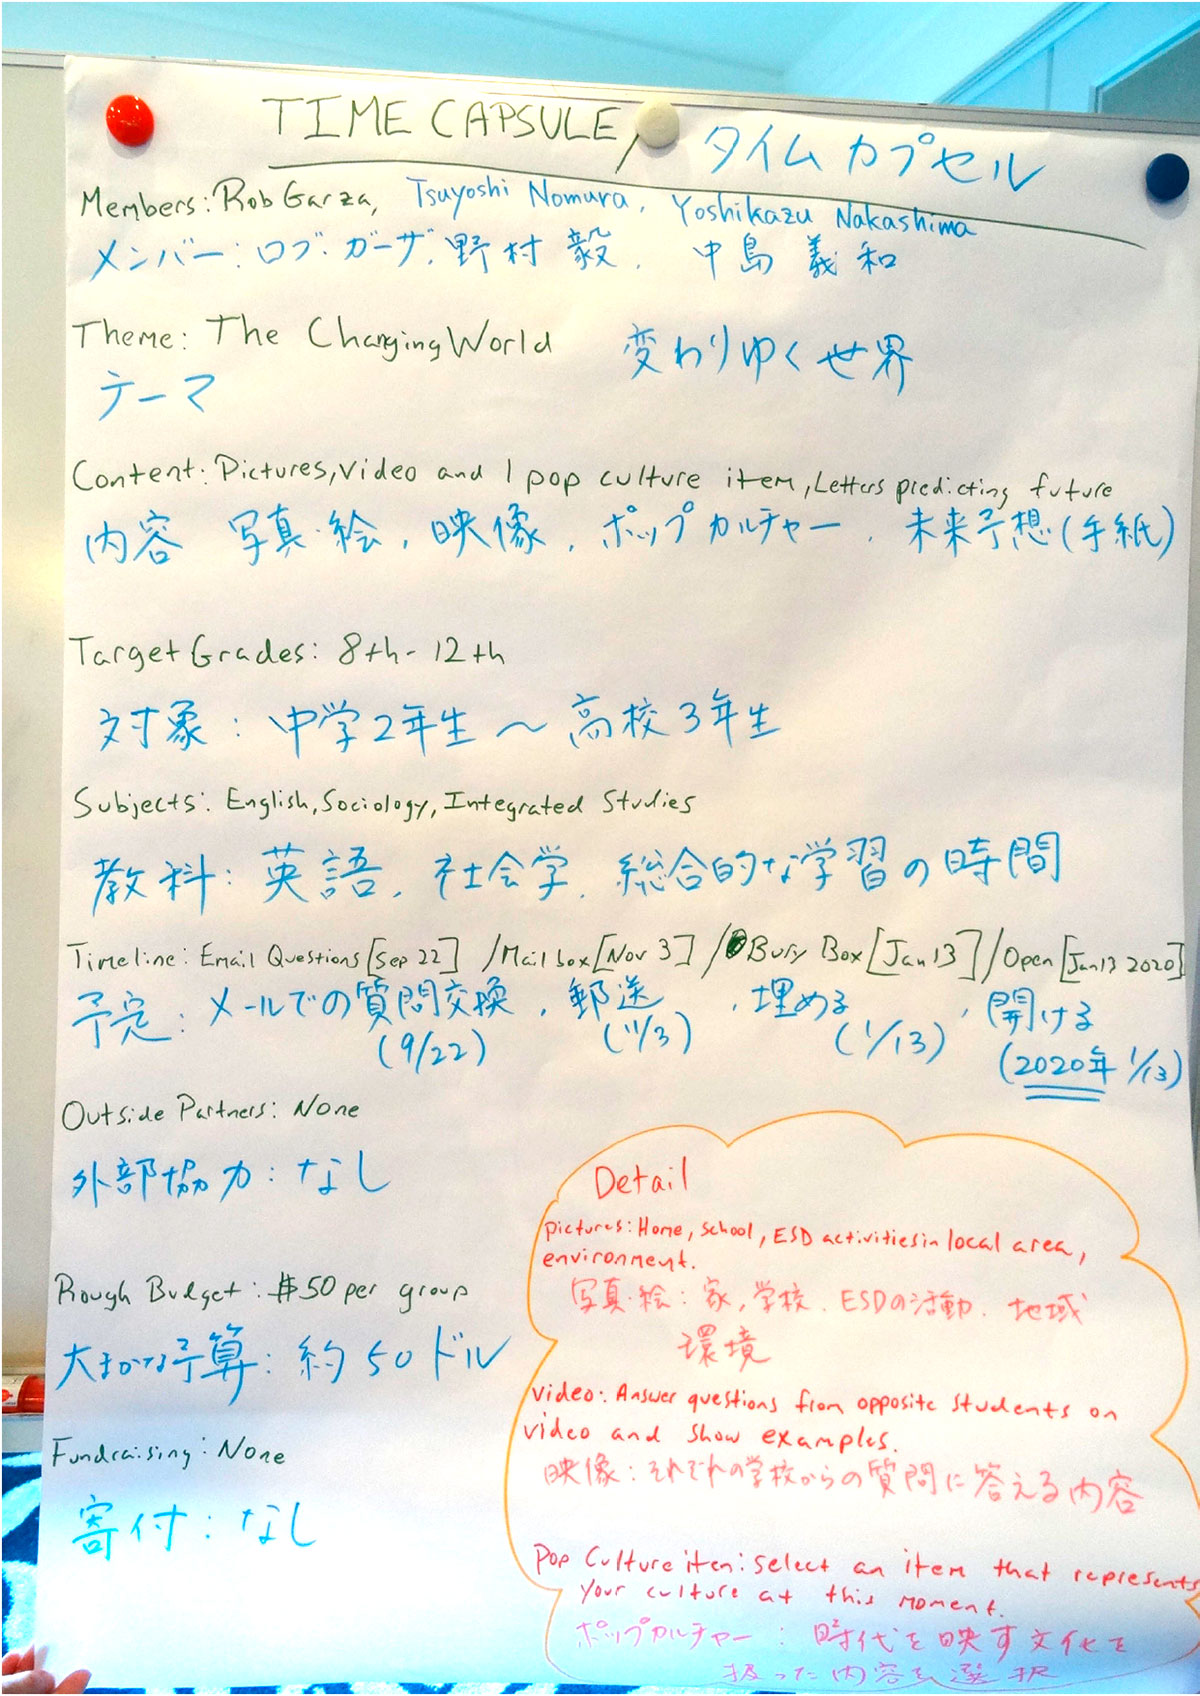 TIME CAPSULE, タイムカプセル
Members: Rob Garza, Tsuyoshi Nomura, Yoshikazu Nakashima
メンバー: ロブ・ガーザ, 野村 毅, 中島 義和
Theme: The Changing World 変わりゆく世界
テーマ
Content: Pictures, Video and 1 pop culture item, Letters predicting future
内容 写真・絵, 映像, ポップカルチャー, 未来予想(手紙)
Target Grades: 8th-12th
対象: 中学2年生〜高校3年生
Subjects: English, Sociology, Integrated Studies
教科: 英語, 社会学, 総合的な学習の時間
Timeline: Email Questions [Sep 22] / Mail box [Nov 3] / Bury Box [Jan 13] / Open [Jan 13 2020]
予定: メールでの質問交換, 郵送, 埋める, 開ける
(9/22) (11/3) (1/13) (2020年 1/13)
Outside Partners: None
外部協力: なし
Rough Budget: $50 per group
大まかな予算: 約50ドル
Fundraising: None
寄付: なし
Detail
Pictures: Home, school, ESD activities in local area,
environment.
写真・絵: 家, 学校, ESDの活動, 地域
環境
Video: Answer questions from opposite students on
video and show examples.
映像: それぞれの学校からの質問に答える内容
Pop Culture iten: Select an item that represents
your culture at this moment.
ポップカルチャー: 時代を映す文化を
扱った内容を選択